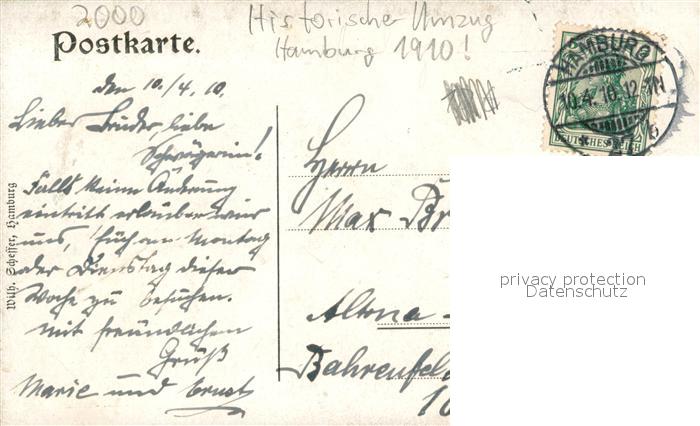 2000
Historischer Umzug
Hamburg 1910!
Postkarte.
HAMBURG
10.4.10.12-1N
DEUTSCHES REICH
den 10./4. 10.
Lieber Bruder, liebe
Schwägerin!
Falls keine Änderung
eintritt erlauben wir
uns, Euch am Montag
oder Dienstag dieser
Woche zu besuchen.
Mit freundlichem
Gruß
Marie und Ernst
Wilh. Scheffer, Hamburg
Herrn
Max Br
Altona -
Bahrenfeld
10
privacy protection
Datenschutz